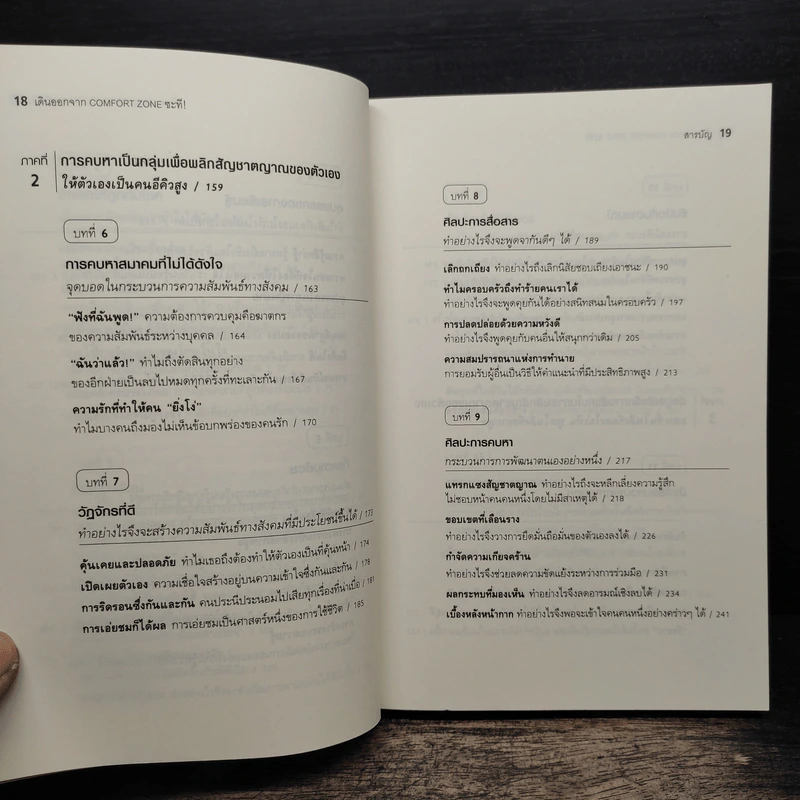 18 เดินออกจาก COMFORT ZONE ซะที!
ภาคที่ 2
การคบหาเป็นกลุ่มเพื่อพลิกสัญชาตญาณของตัวเอง
ให้ตัวเองเป็นคนอีคิวสูง / 159
บทที่ 6
การคบหาสมาคมที่ไม่ได้ดังใจ
จุดบอดในกระบวนการความสัมพันธ์ทางสังคม / 163
"ฟังที่ฉันพูด!" ความต้องการควบคุมคือฆาตกร
ของความสัมพันธ์ระหว่างบุคคล / 164
"ฉันว่าแล้ว!" ทำไมถึงตัดสินทุกอย่าง
ของอีกฝ่ายเป็นลบไปหมดทุกครั้งที่ทะเลาะกัน / 167
ความรักที่ทำให้คน "ยิ่งโง่"
ทำไมบางคนถึงมองไม่เห็นข้อบกพร่องของคนรัก / 170
บทที่ 7
วัฏจักรที่ดี
ทำอย่างไรจึงจะสร้างความสัมพันธ์ทางสังคมที่มีประโยชน์ขึ้นได้ / 173
คุ้นเคยและปลอดภัย ทำไมเธอถึงต้องทำให้ตัวเองเป็นที่คุ้นหน้า / 174
เปิดเผยตัวเอง ความเชื่อใจสร้างอยู่บนความเข้าใจซึ่งกันและกัน / 178
การริดรอนซึ่งกันและกัน คนประนีประนอมไปเสียทุกเรื่องที่น่าเบื่อ / 181
การเอ่ยชมก็ได้ผล การเอ่ยชมเป็นศาสตร์หนึ่งของการใช้ชีวิต / 185
สารบัญ 19
บทที่ 8
ศิลปะการสื่อสาร
ทำอย่างไรจึงจะพูดจากันดีๆ ได้ / 189
เลิกถกเถียง ทำอย่างไรถึงเลิกนิสัยชอบเถียงเอาชนะ / 190
ทำไมครอบครัวถึงทำร้ายคนเราได้
ทำอย่างไรจึงจะพูดคุยกันได้อย่างสนิทสนมในครอบครัว / 197
การปลดปล่อยด้วยความหวังดี
ทำอย่างไรถึงพูดคุยกับคนอื่นให้สนุกกว่าเดิม / 205
ความสมปรารถนาแห่งการทำนาย
การยอมรับผู้อื่นเป็นวิธีให้คำแนะนำที่มีประสิทธิภาพสูง / 213
บทที่ 9
ศิลปะการคบหา
กระบวนการการพัฒนาตนเองอย่างหนึ่ง / 217
แทรกแซงสัญชาตญาณ ทำอย่างไรถึงจะหลีกเลี่ยงความรู้สึก
ไม่ชอบหน้าคนคนหนึ่งโดยไม่มีสาเหตุได้ / 218
ขอบเขตที่เลือนราง
ทำอย่างไรจึงจะวางการยึดมั่นถือมั่นของตัวเองลงได้ / 226
กำจัดความเกียจคร้าน
ทำอย่างไรถึงจะช่วยลดความขัดแย้งระหว่างการร่วมมือ / 231
ผลกระทบที่มองเห็น ทำอย่างไรจึงลดอารมณ์เชิงลบได้ / 234
เบื้องหลังหน้ากาก ทำอย่างไรจึงพอจะเข้าใจคนคนหนึ่งอย่างคร่าวๆ ได้ / 241